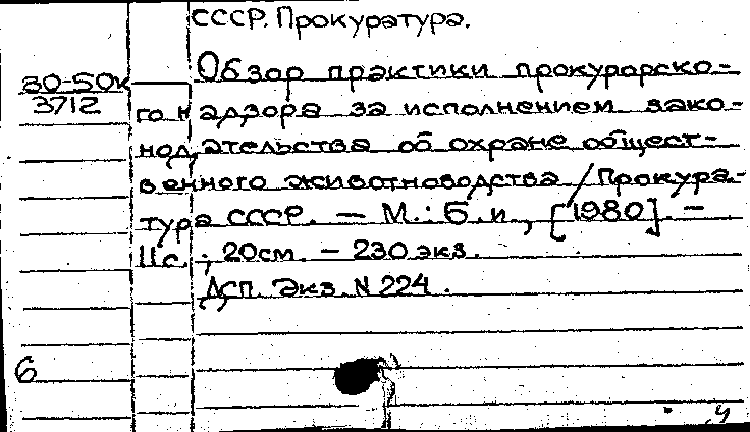 СССР. Прокуратура.
80-50к
3712
Обзор практики прокурорско-
го надзора за исполнением зако-
нодательства об охране общест-
венного животноводства / Прокура-
тура СССР. — М.: Б.и., [1980]. —
11с.; 20см. — 230 экз.
Дсп. Экз. N 224.
6